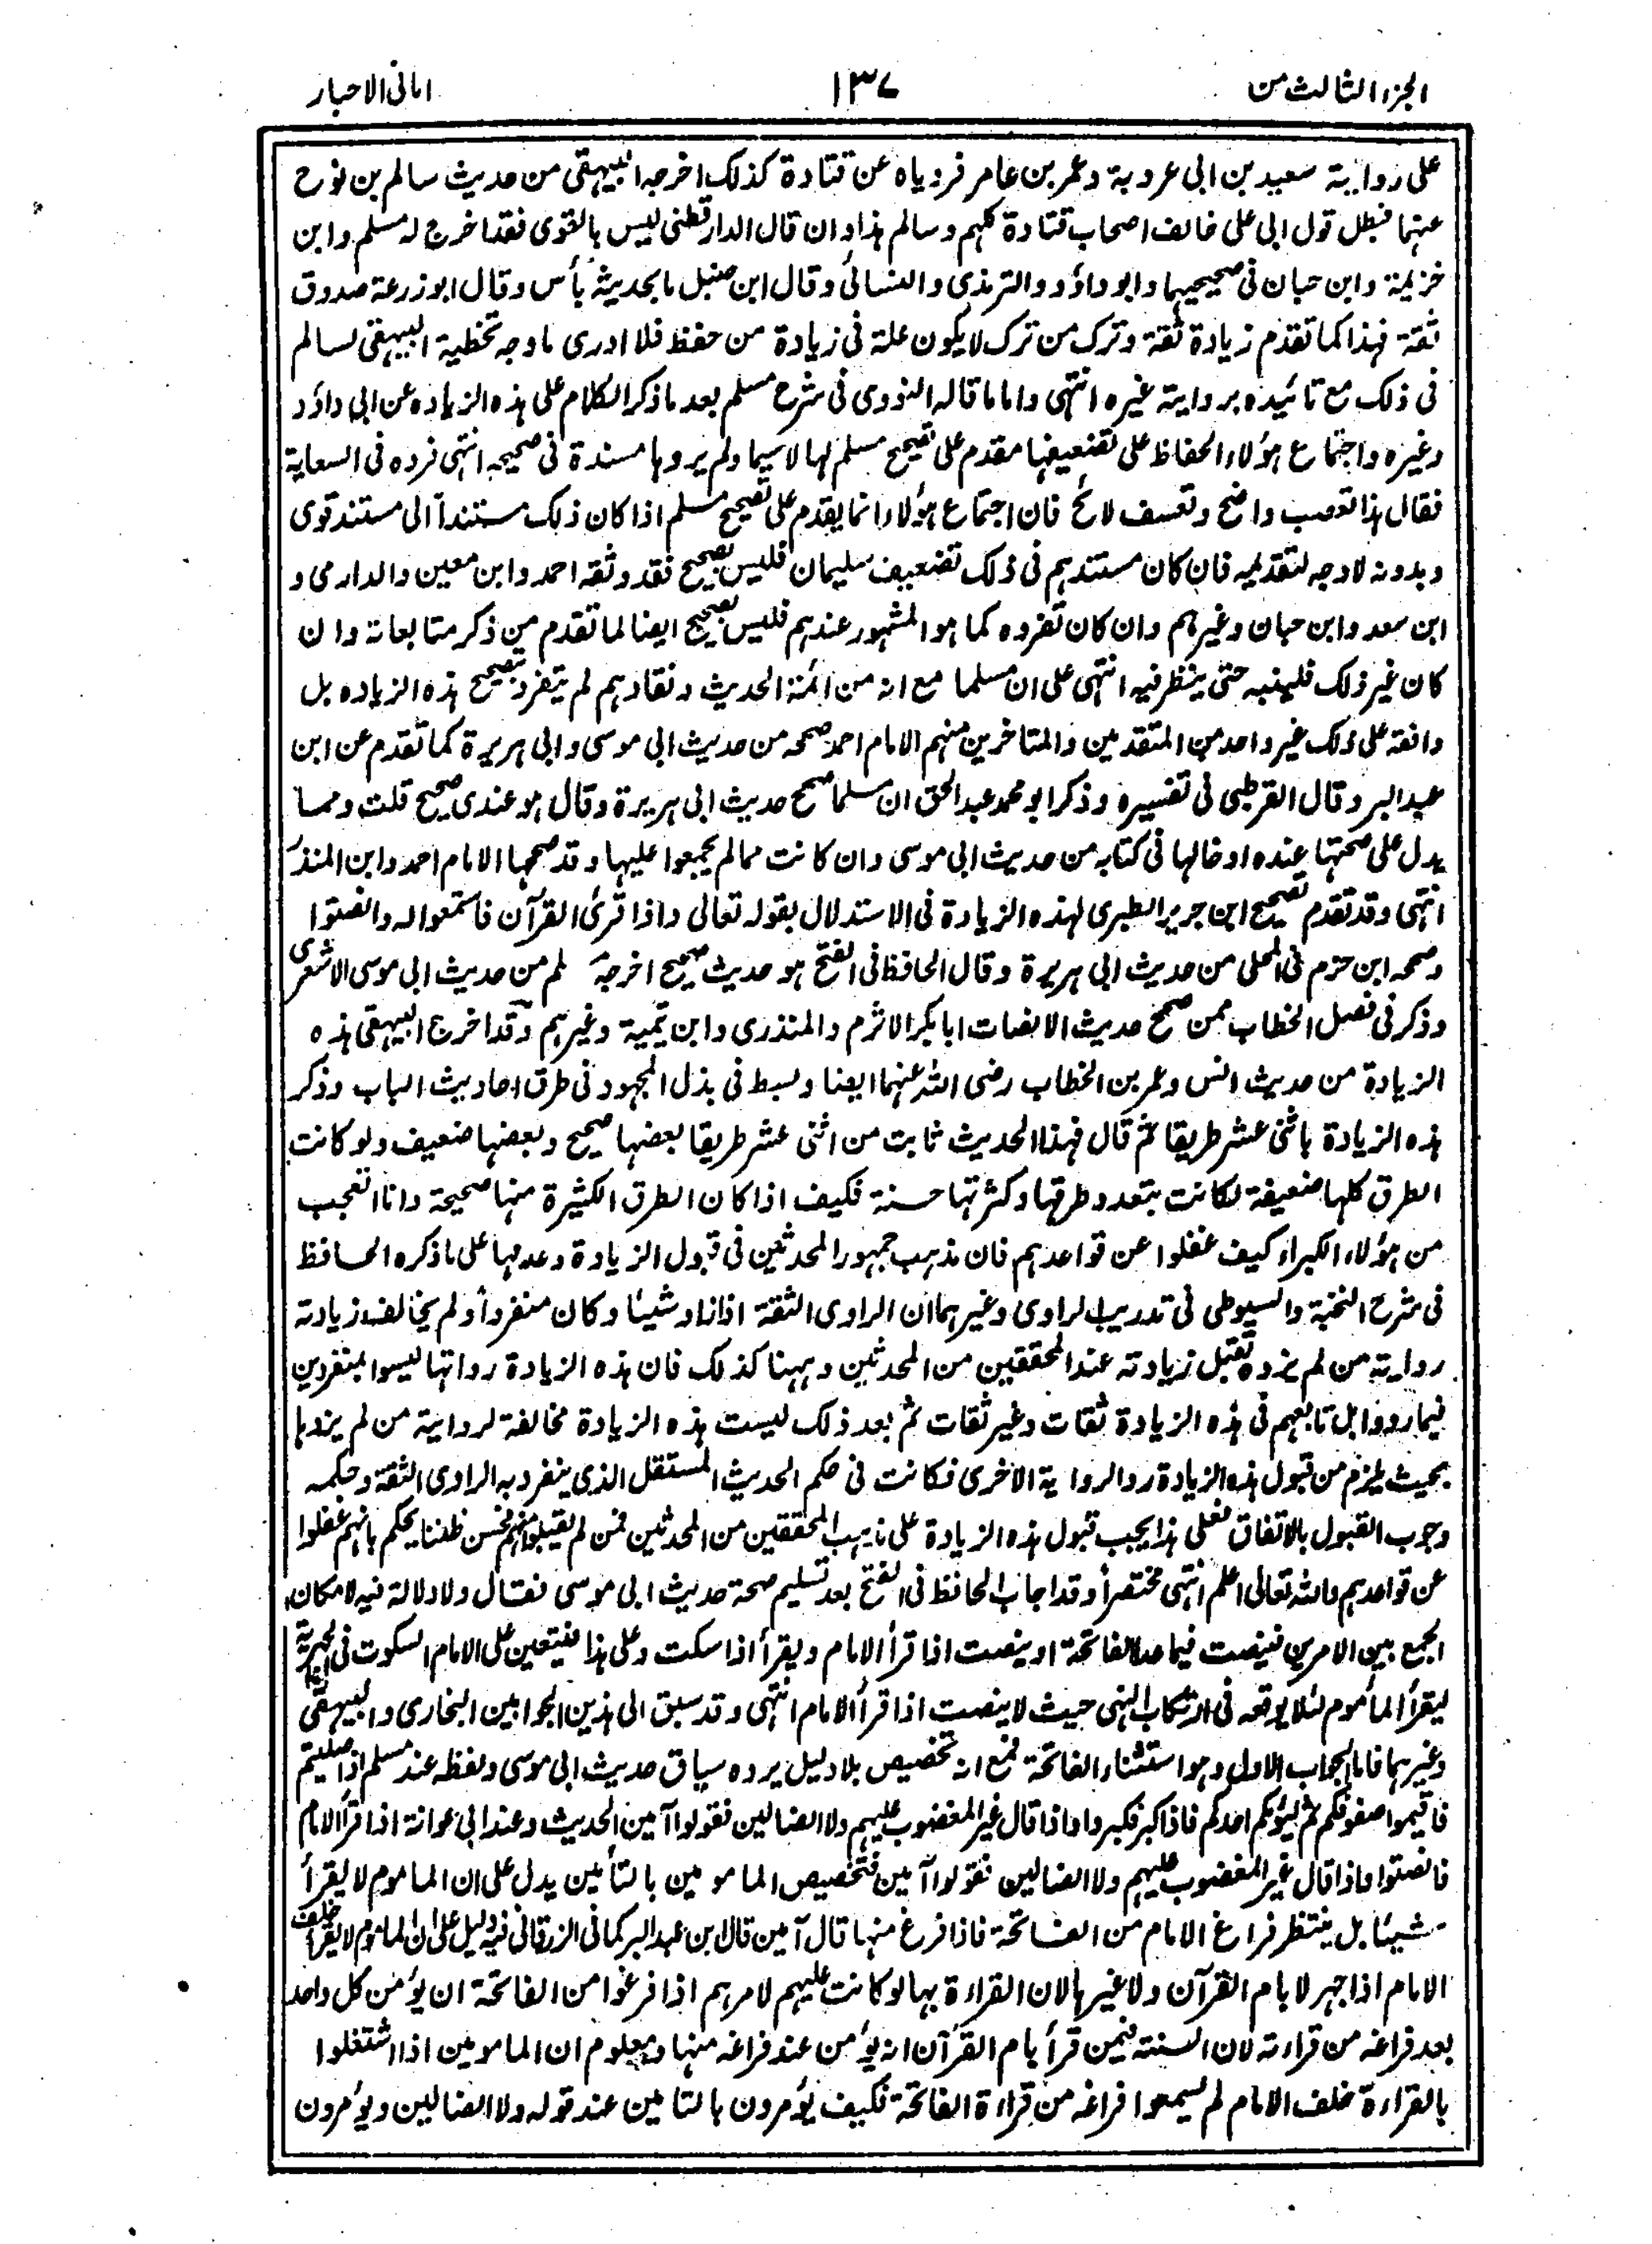 الجزء الثالث من
١٣٧
امانی الاحبار
علی روایة سعید بن ابی عروبة وعمر بن عامر فرویاه عن قتادة کذلک اخرجه البیهقی من حدیث سالم بن نوح
عنهما فبطل قول ابی علی خالف اصحاب قتادة کلهم وسالم هذا وان قال الدارقطنی لیس بالقوی فقد اخرج له مسلم وابن
خزیمة وابن حبان فی صحیحیهما وابو داؤد والترمذی والنسائی وقال ابن حنبل ما بحدیثه بأس وقال ابو زرعة صدوق
ثقة فهذا کما تقدم زیادة ثقة وترک من ترک لا یکون علة فی زیادة من حفظ فلا ادری ما وجه تخطیة البیهقی لسالم
فی ذلک مع تائیده بروایته غیره انتهی واما ما قاله النووی فی شرح مسلم بعد ما ذکر الکلام علی هذه الزیاده عن ابی داؤد
وغیره واجتماع هؤلاء الحفاظ علی تضعیفها مقدم علی تصحیح مسلم لها لا سیما ولم یروها مسندة فی صحیحه انتهی فرده فی السعایة
فقال هذا تعصب واضح وتعسف لائح فان اجتماع هؤلاء انما یقدم علی تصحیح مسلم اذا کان ذلک مستنداً الی مستند قوی
وبدونه لا وجه لتقدیمه فان کان مستندهم فی ذلک تضعیف سلیمان فلیس بصحیح فقد وثقه احمد وابن معین والدارمی و
ابن سعد وابن حبان وغیرهم وان کان تفرده کما هو المشهور عندهم فلیس بصحیح ایضا لما تقدم من ذکر متابعاته وان
کان غیر ذلک فلینبه حتی ینظر فیه انتهی علی ان مسلما مع انه من ائمة الحدیث ونقادهم لم یتفرد بتصحیح هذه الزیاده بل
وافقه علی ذلک غیر واحد من المتقدمین والمتاخرین منهم الامام احمد صححه من حدیث ابی موسی وابی هریرة کما تقدم عن ابن
عبد البر وقال القرطبی فی تفسیره وذکر ابو محمد عبد الحق ان مسلما صحح حدیث ابی هریرة وقال هو عندی صحیح قلت ومما
یدل علی صحتها عنده ادخالها فی کتابه من حدیث ابی موسی وان کانت مما لم یجمعوا علیها وقد صححها الامام احمد وابن المنذر
انتهی وقد تقدم تصحیح ابن جریر الطبری لهذه الزیادة فی الاستدلال بقوله تعالی واذا قرئ القرآن فاستمعوا له وانصتوا
وصححه ابن حزم فی المحلی من حدیث ابی هریرة وقال الحافظ فی الفتح هو حدیث صحیح اخرجه لم من حدیث ابی موسی الاشعری
وذکر فی فصل الخطاب ممن صحح حدیث الانصات ابا بکر الاثرم والمنذری وابن تیمیة وغیرهم وقد اخرج البیهقی هذه
الزیادة من حدیث انس وعمر بن الخطاب رضی الله عنهما ایضا وبسط فی بذل المجهود فی طرق احادیث الباب وذکر
هذه الزیادة باثنی عشر طریقا ثم قال فهذا الحدیث ثابت من اثنی عشر طریقا بعضها صحیح وبعضها ضعیف ولو کانت
الطرق کلها ضعیفة لکانت بتعدد طرقها وکثرتها حسنة فکیف اذا کان الطرق الکثیرة منها صحیحة وانا اتعجب
من هؤلاء الکبراء کیف غفلوا عن قواعدهم فان مذهب جمهور المحدثین فی قبول الزیادة وعدمها علی ما ذکره الحافظ
فی شرح النخبة والسیوطی فی تدریب الراوی وغیرهما ان الراوی الثقة اذا زاد شیئا وکان منفرداً ولم یخالف زیادته
روایة من لم یزده تقبل زیادته عند المحققین من المحدثین وههنا کذلک فان هذه الزیادة رواتها لیسوا بمنفردین
فیما رووا بل تابعهم فی هذه الزیادة ثقات وغیر ثقات ثم بعد ذلک لیست هذه الزیادة مخالفة لروایة من لم یزدها
بحیث یلزم من قبول هذه الزیادة رد الروایة الاخری فکانت فی حکم الحدیث المستقل الذی ینفرد به الراوی الثقة وحکمه
وجوب القبول بالاتفاق فعلی هذا یجب قبول هذه الزیادة علی مذهب المحققین من المحدثین فمن لم یقبلوا منهم فحسن ظننا یحکم بانهم غفلوا
عن قواعدهم والله تعالی اعلم انتهی مختصراً وقد اجاب الحافظ فی الفتح بعد تسلیم صحة حدیث ابی موسی فقال ولا دلالة فیه لامکان
الجمع بین الامرین فینصت فیما عدا الفاتحة او ینصت اذا قرأ الامام ویقرأ اذا سکت وعلی هذا فیتعین علی الامام السکوت فی الجهریة
لیقرأ المأموم لئلا یوقعه فی ارتکاب النهی حیث لا ینصت اذا قرأ الامام انتهی وقد سبق الی هذین الجوابین البخاری والبیهقی
وغیرهما فاما الجواب الاول وهو استثناء الفاتحة فمع انه تخصیص بلا دلیل یرده سیاق حدیث ابی موسی ولفظه عند مسلم اذا صلیتم
فاقیموا صفوفکم ثم لیؤمکم احدکم فاذا کبر فکبروا واذا قال غیر المغضوب علیهم ولا الضالین فقولوا آمین الحدیث وعند ابی عوانة اذا قرأ الامام
فانصتوا فاذا قال غیر المغضوب علیهم ولا الضالین فقولوا آمین فتخصیص المامومین بالتأمین یدل علی ان الماموم لا یقرأ
شیئا بل ینتظر فراغ الامام من الفاتحة فاذا فرغ منها قال آمین قال ابن عبد البر کما فی الزرقانی فیه دلیل علی ان الماموم لا یقرأ خلف
الامام اذا جهر لا بام القرآن ولا غیرها لان القراءة بها لو کانت علیهم لامرهم اذا فرغوا من الفاتحة ان یؤمن کل واحد
بعد فراغه من قراءته لان السنة فیمن قرأ بام القرآن انه یؤمن عند فراغه منها ومعلوم ان المامومین اذا اشتغلوا
بالقراءة خلف الامام لم یسمعوا فراغه من قراءة الفاتحة فکیف یؤمرون بالتامین عند قوله ولا الضالین ویؤمرون